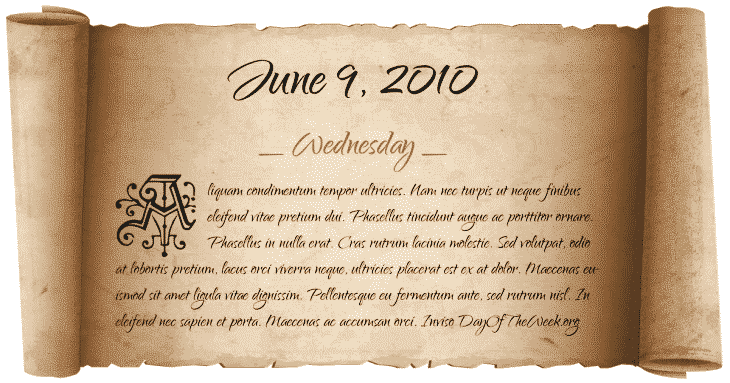 June 9, 2010
Wednesday
Aliquam condimentum tempor ultricies. Nam nec turpis ut neque finibus
eleifend vitae pretium dui. Phasellus tincidunt augue ac porttitor ornare.
Phasellus in nulla erat. Cras rutrum lacinia molestie. Sed volutpat, odio
at lobortis pretium, lacus orci viverra neque, ultricies placerat est ex at dolor. Maecenas eu
ismod sit amet ligula vitae dignissim. Pellentesque eu fermentum ante, sed rutrum nisl. In
eleifend nec sapien et porta. Maecenas ac accumsan orci. Inviso DayOfTheWeek.org